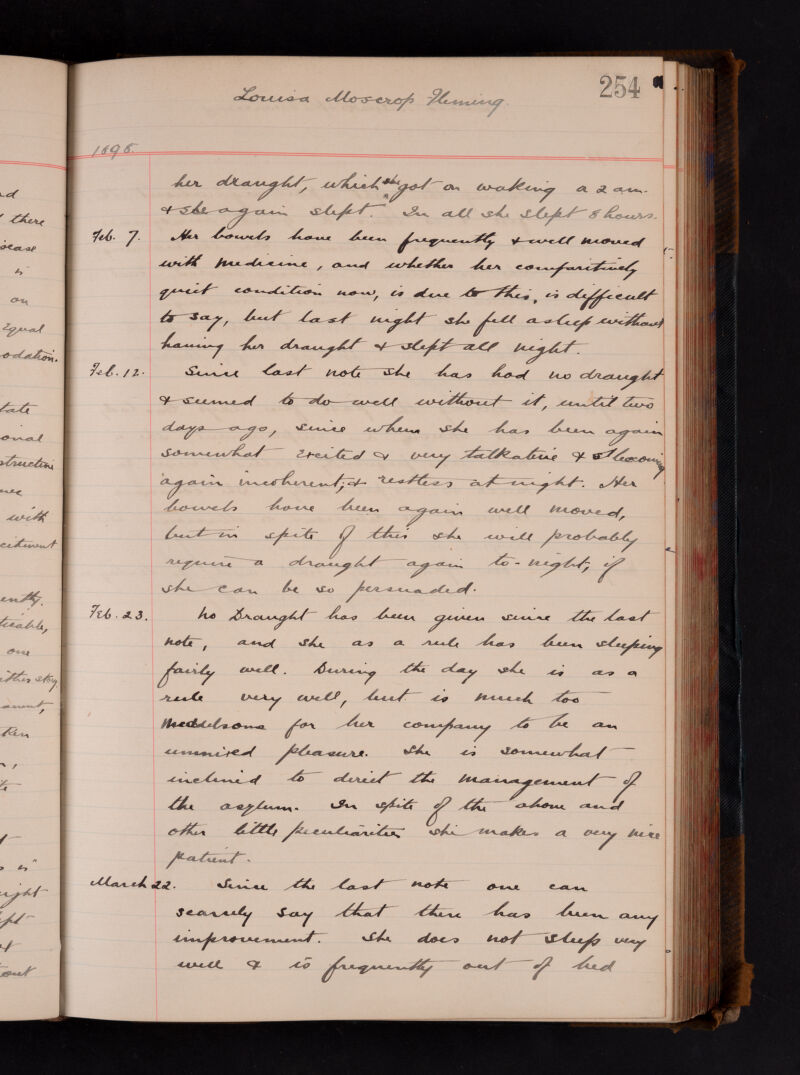 254
Louisa Moscrop Fleming.
1896.
her draught, which she got on waking a 2 am.
& she again slept. In all she slept 8 hours.
Feb. 7. Her bowels have been frequently & well moved
with medicine, and whether her comparitively
quiet condition now, is due to this, is difficult
to say, but last night she fell asleep without
having her draught & slept all night.
Feb. 12. Since last note she has had no draught
& seemed to do well without it, until two
days ago, since when she has been again
somewhat excited & very talkative & becoming
again incoherent, & restless at night. Her
bowels have been again well moved,
but in spite of this she will probably
require a draught again to-night, if
she can be so persuaded.
Feb. 23. No Draught has been given since the last
note, and she as a rule has been sleeping
fairly well. During the day she is as a
rule very well, but is much too
meddlesome for her company to be an
unmixed pleasure. She is somewhat
inclined to direct the management of
the asylum. In spite of the above and
other little peculiarities she makes a very nice
patient.
March 22. Since the last note one can
scarsely say that there has been any
improvement. She does not sleep very
well & is frequently out of bed
there
is
on
equal
odation.
tate
onal
with
citement
ently.
one
ken
ight
out